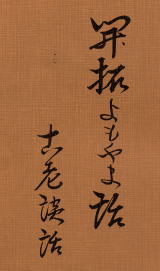 開拓よもやま話
古老談話